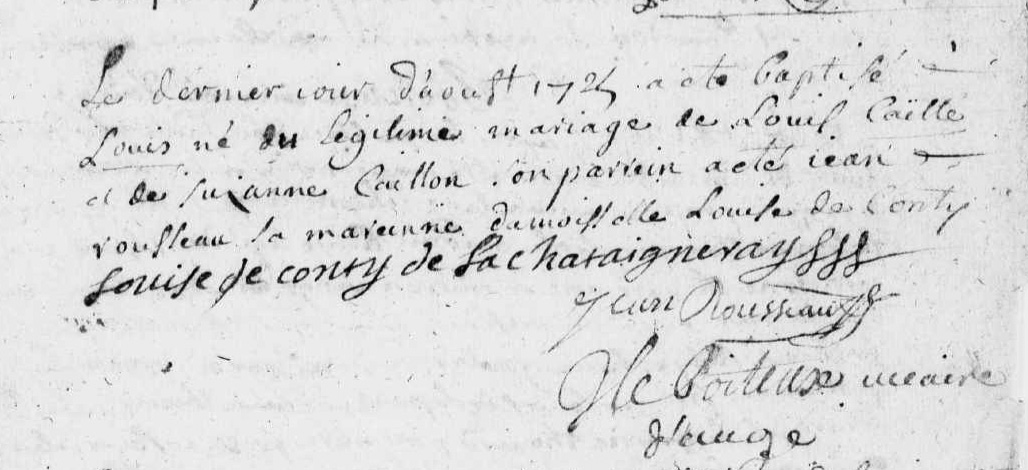 Le dernier iour d'aoust 172 a ete baptisé
Louis né du legitime mariage de Louis Caillé
et de suzanne Caillon son parrein a eté iean
rousseau sa mareinne damoisselle Louise de Conty
Louise de conty de La chataigneray
Jean Rousseau
Le Poiteux viceaire
d'auge